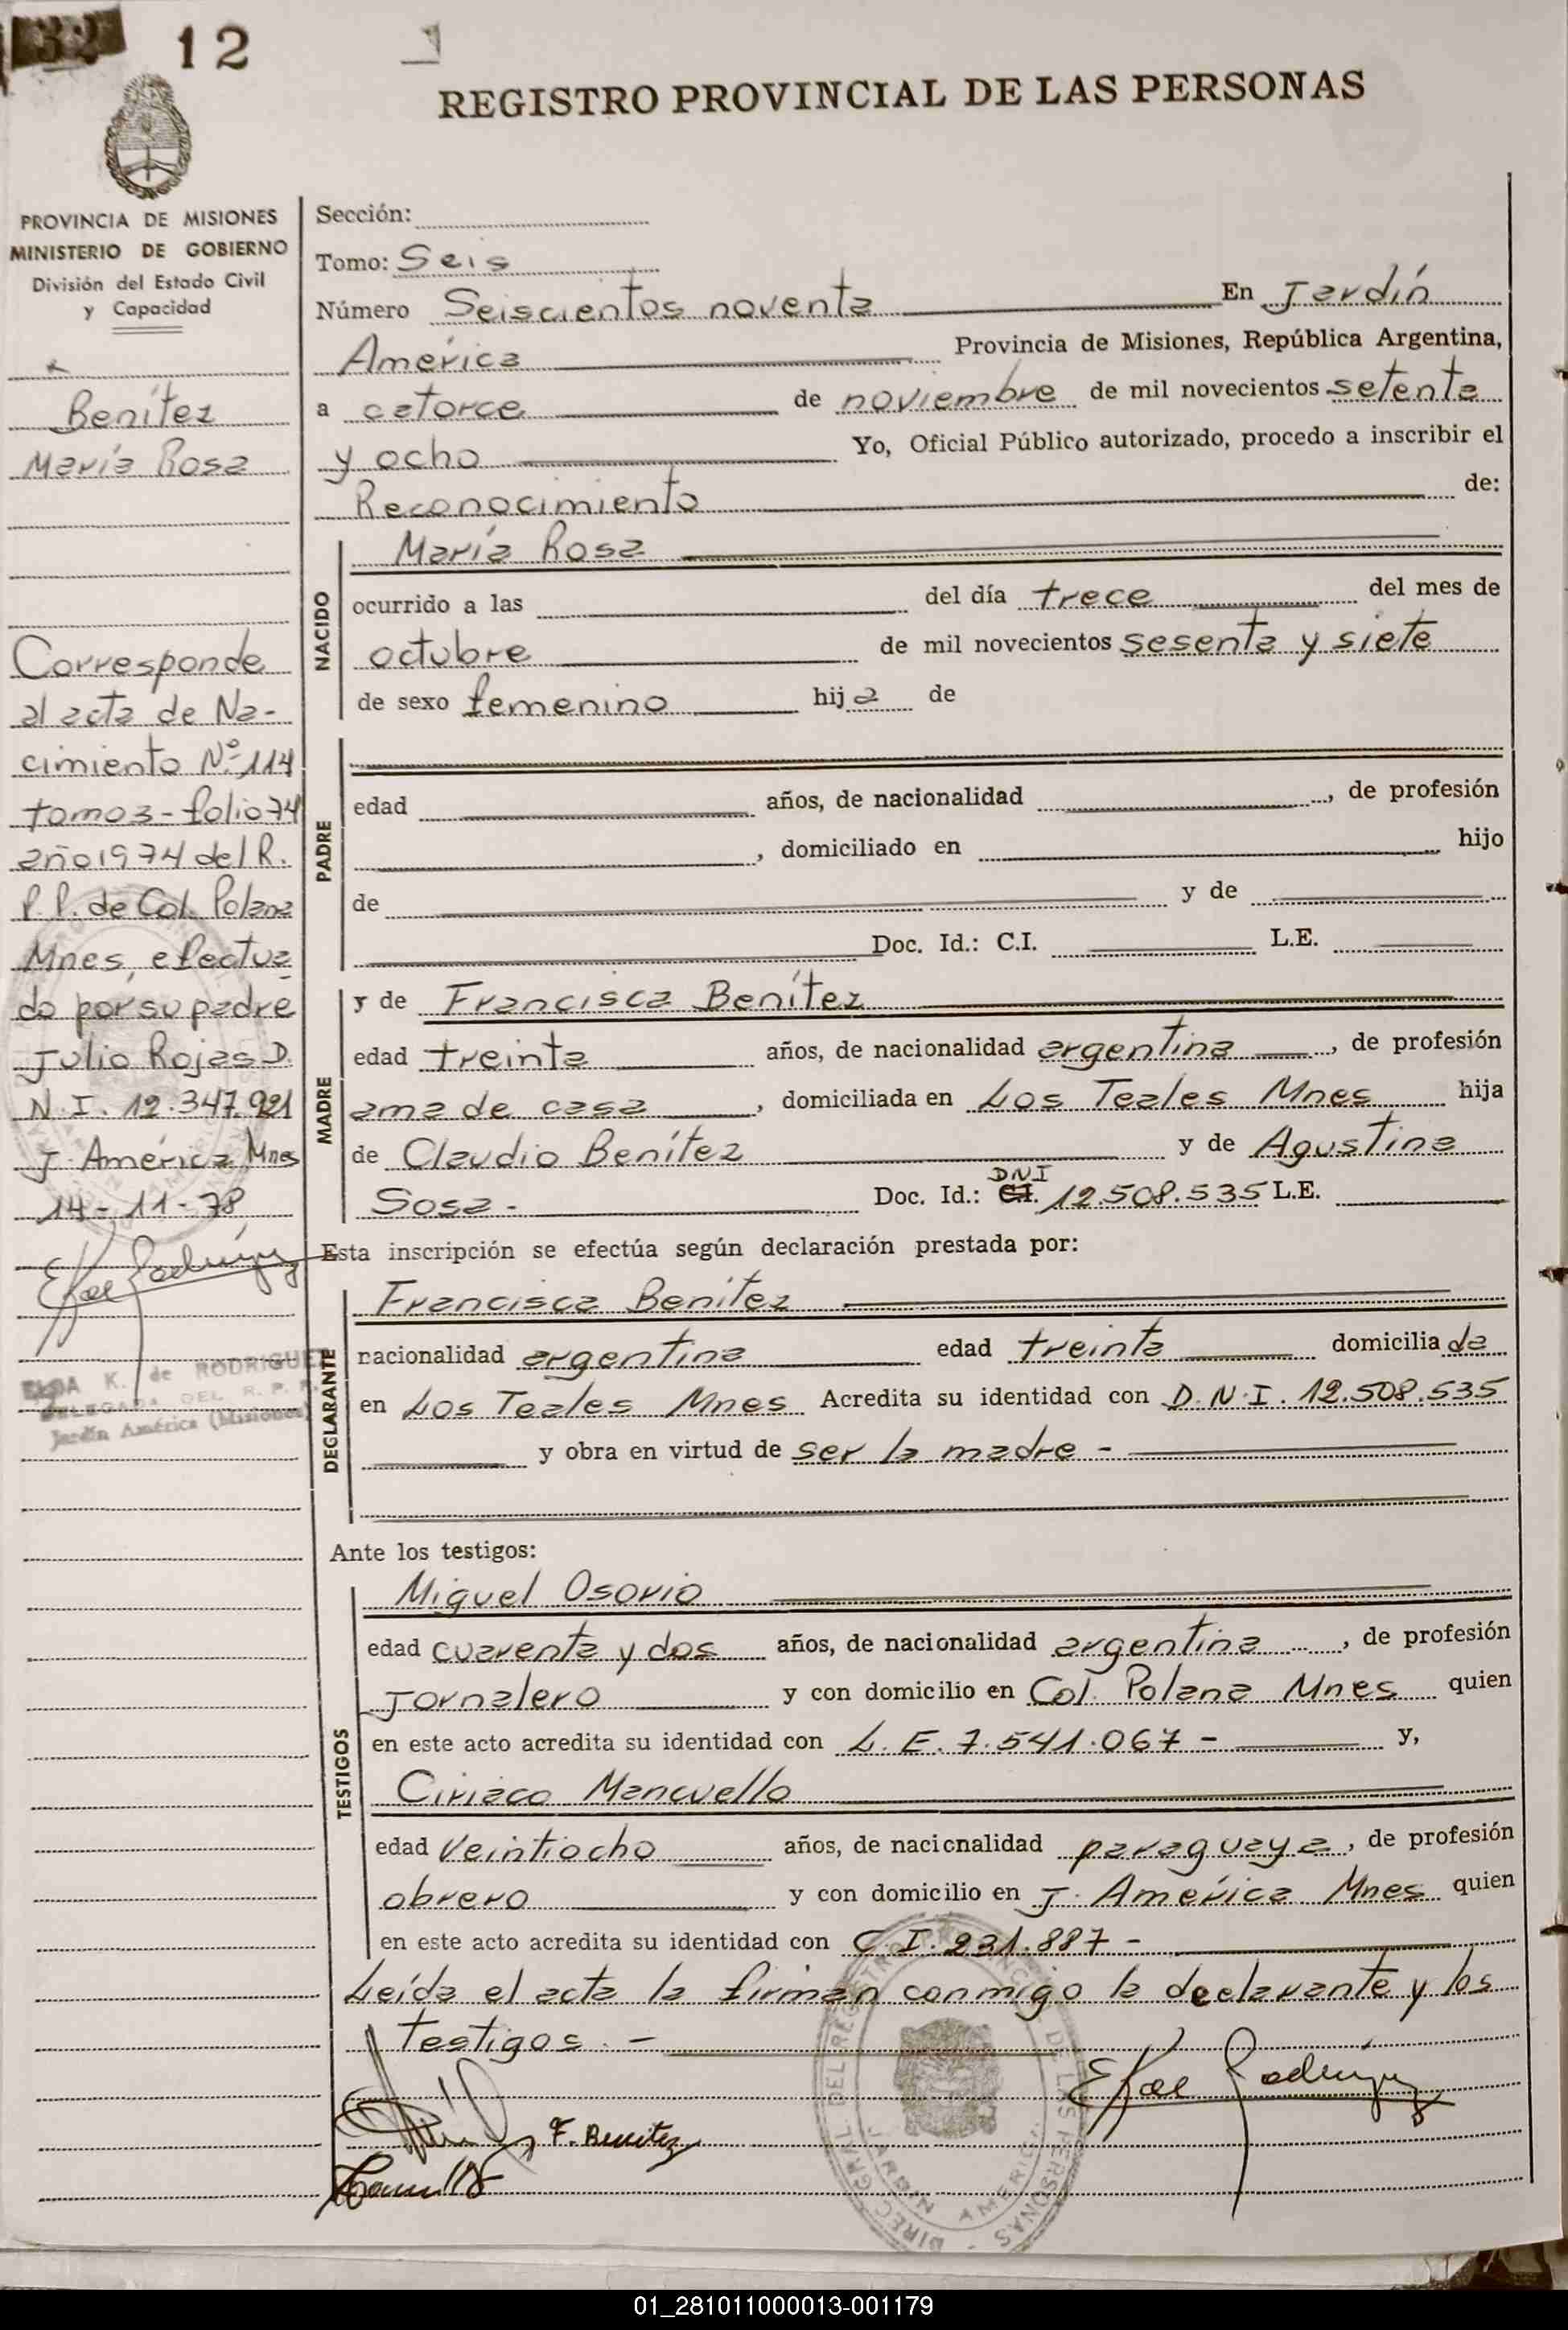 32 12
REGISTRO PROVINCIAL DE LAS PERSONAS
PROVINCIA DE MISIONES
MINISTERIO DE GOBIERNO
División del Estado Civil
y Capacidad
Benítez
María Rosa
Corresponde
al acta de Na-
cimiento Nº 114
tomo 3 - folio 74
año 1974 del R.
P.P. de Col. Polana
Mnes, efectua
do por su padre
Julio Rojas D.
N.I. 12.347.921
J. América Mnes
14-11-78
ELDA K. de RODRIGUEZ
DELEGADA DEL R. P. P.
Jardín América (Misiones)
Sección:
Tomo: Seis
Número Seiscientos noventa En Jardín
América Provincia de Misiones, República Argentina,
a catorce de noviembre de mil novecientos setenta
y ocho Yo, Oficial Público autorizado, procedo a inscribir el
Reconocimiento de:
NACIDO
María Rosa
ocurrido a las del día trece del mes de
octubre de mil novecientos sesenta y siete
de sexo femenino hija de
PADRE
edad años, de nacionalidad , de profesión
, domiciliado en hijo
de y de
Doc. Id.: C.I. L.E.
MADRE
y de Francisca Benítez
edad treinta años, de nacionalidad argentina , de profesión
ama de casa , domiciliada en Los Teales Mnes hija
de Claudio Benítez y de Agustina
DNI
Sosa - Doc. Id.: C.I. 12.508.535 L.E.
Esta inscripción se efectúa según declaración prestada por:
DECLARANTE
Francisca Benítez
nacionalidad argentina edad treinta domiciliada
en Los Teales Mnes Acredita su identidad con D.N.I. 12.508.535
y obra en virtud de ser la madre -
Ante los testigos:
TESTIGOS
Miguel Osorio
edad cuarenta y dos años, de nacionalidad argentina , de profesión
Jornalero y con domicilio en Col. Polana Mnes quien
en este acto acredita su identidad con L.E. 7.541.067 - y,
Ciriaco Mancuello
edad veintiocho años, de nacionalidad paraguaya, de profesión
obrero y con domicilio en J. América Mnes quien
en este acto acredita su identidad con C.I. 231.887 -
Leída el acta la firman conmigo la declarante y los
testigos. -
F. Benitez
DIREC. GRAL DEL REGISTRO PROVINCIAL DE LAS PERSONAS
JARDIN AMERICA
01_281011000013-001179